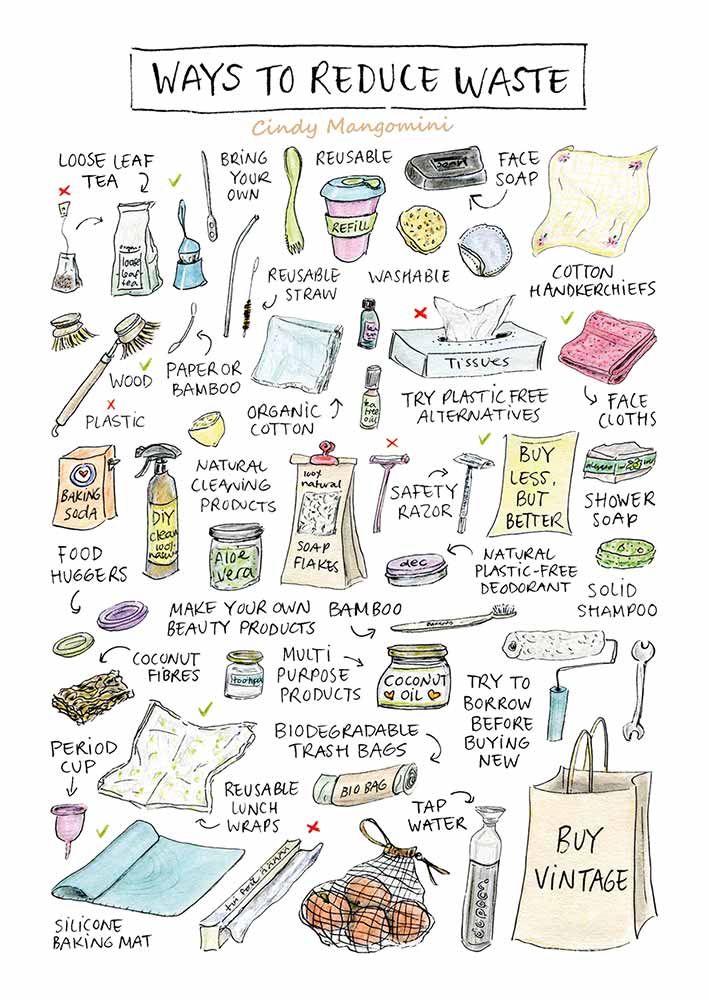 WAYS TO REDUCE WASTE
Cindy Mangomini
LOOSE LEAF
TEA
organic
loose
leaf
tea
BRING
YOUR
OWN
REUSABLE
REFILL
FACE
SOAP
REUSABLE
STRAW
WASHABLE
COTTON
HANDKERCHIEFS
WOOD
PLASTIC
PAPER OR
BAMBOO
ORGANIC
COTTON
tea
tree
oil
TISSUES
TRY PLASTIC FREE
ALTERNATIVES
FACE
CLOTHS
BAKING
SODA
DIY
clean
100%
NATURAL
CLEANING
PRODUCTS
Aloe
vera
100%
natural
SOAP
FLAKES
SAFETY
RAZOR
BUY
LESS,
BUT
BETTER
SHOWER
SOAP
FOOD
HUGGERS
deo
NATURAL
PLASTIC-FREE
DEODORANT
SOLID
SHAMPOO
MAKE YOUR OWN
BEAUTY PRODUCTS
BAMBOO
COCONUT
FIBRES
MULTI
PURPOSE
PRODUCTS
COCONUT
OIL
TRY TO
BORROW
BEFORE
BUYING
NEW
PERIOD
CUP
REUSABLE
LUNCH
WRAPS
BIODEGRADABLE
TRASH BAGS
BIO BAG
TAP
WATER
BUY
VINTAGE
SILICONE
BAKING MAT